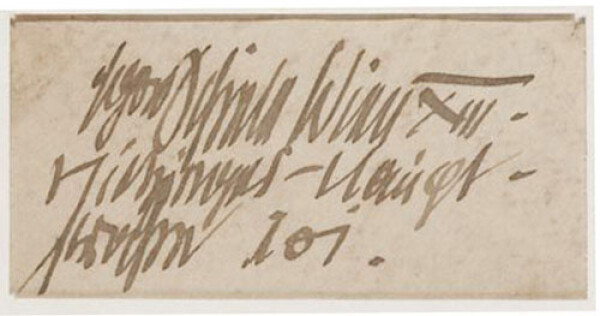 Egon Schiele Wien XIII.
Hietzinger-Haupt-
strasse 101.